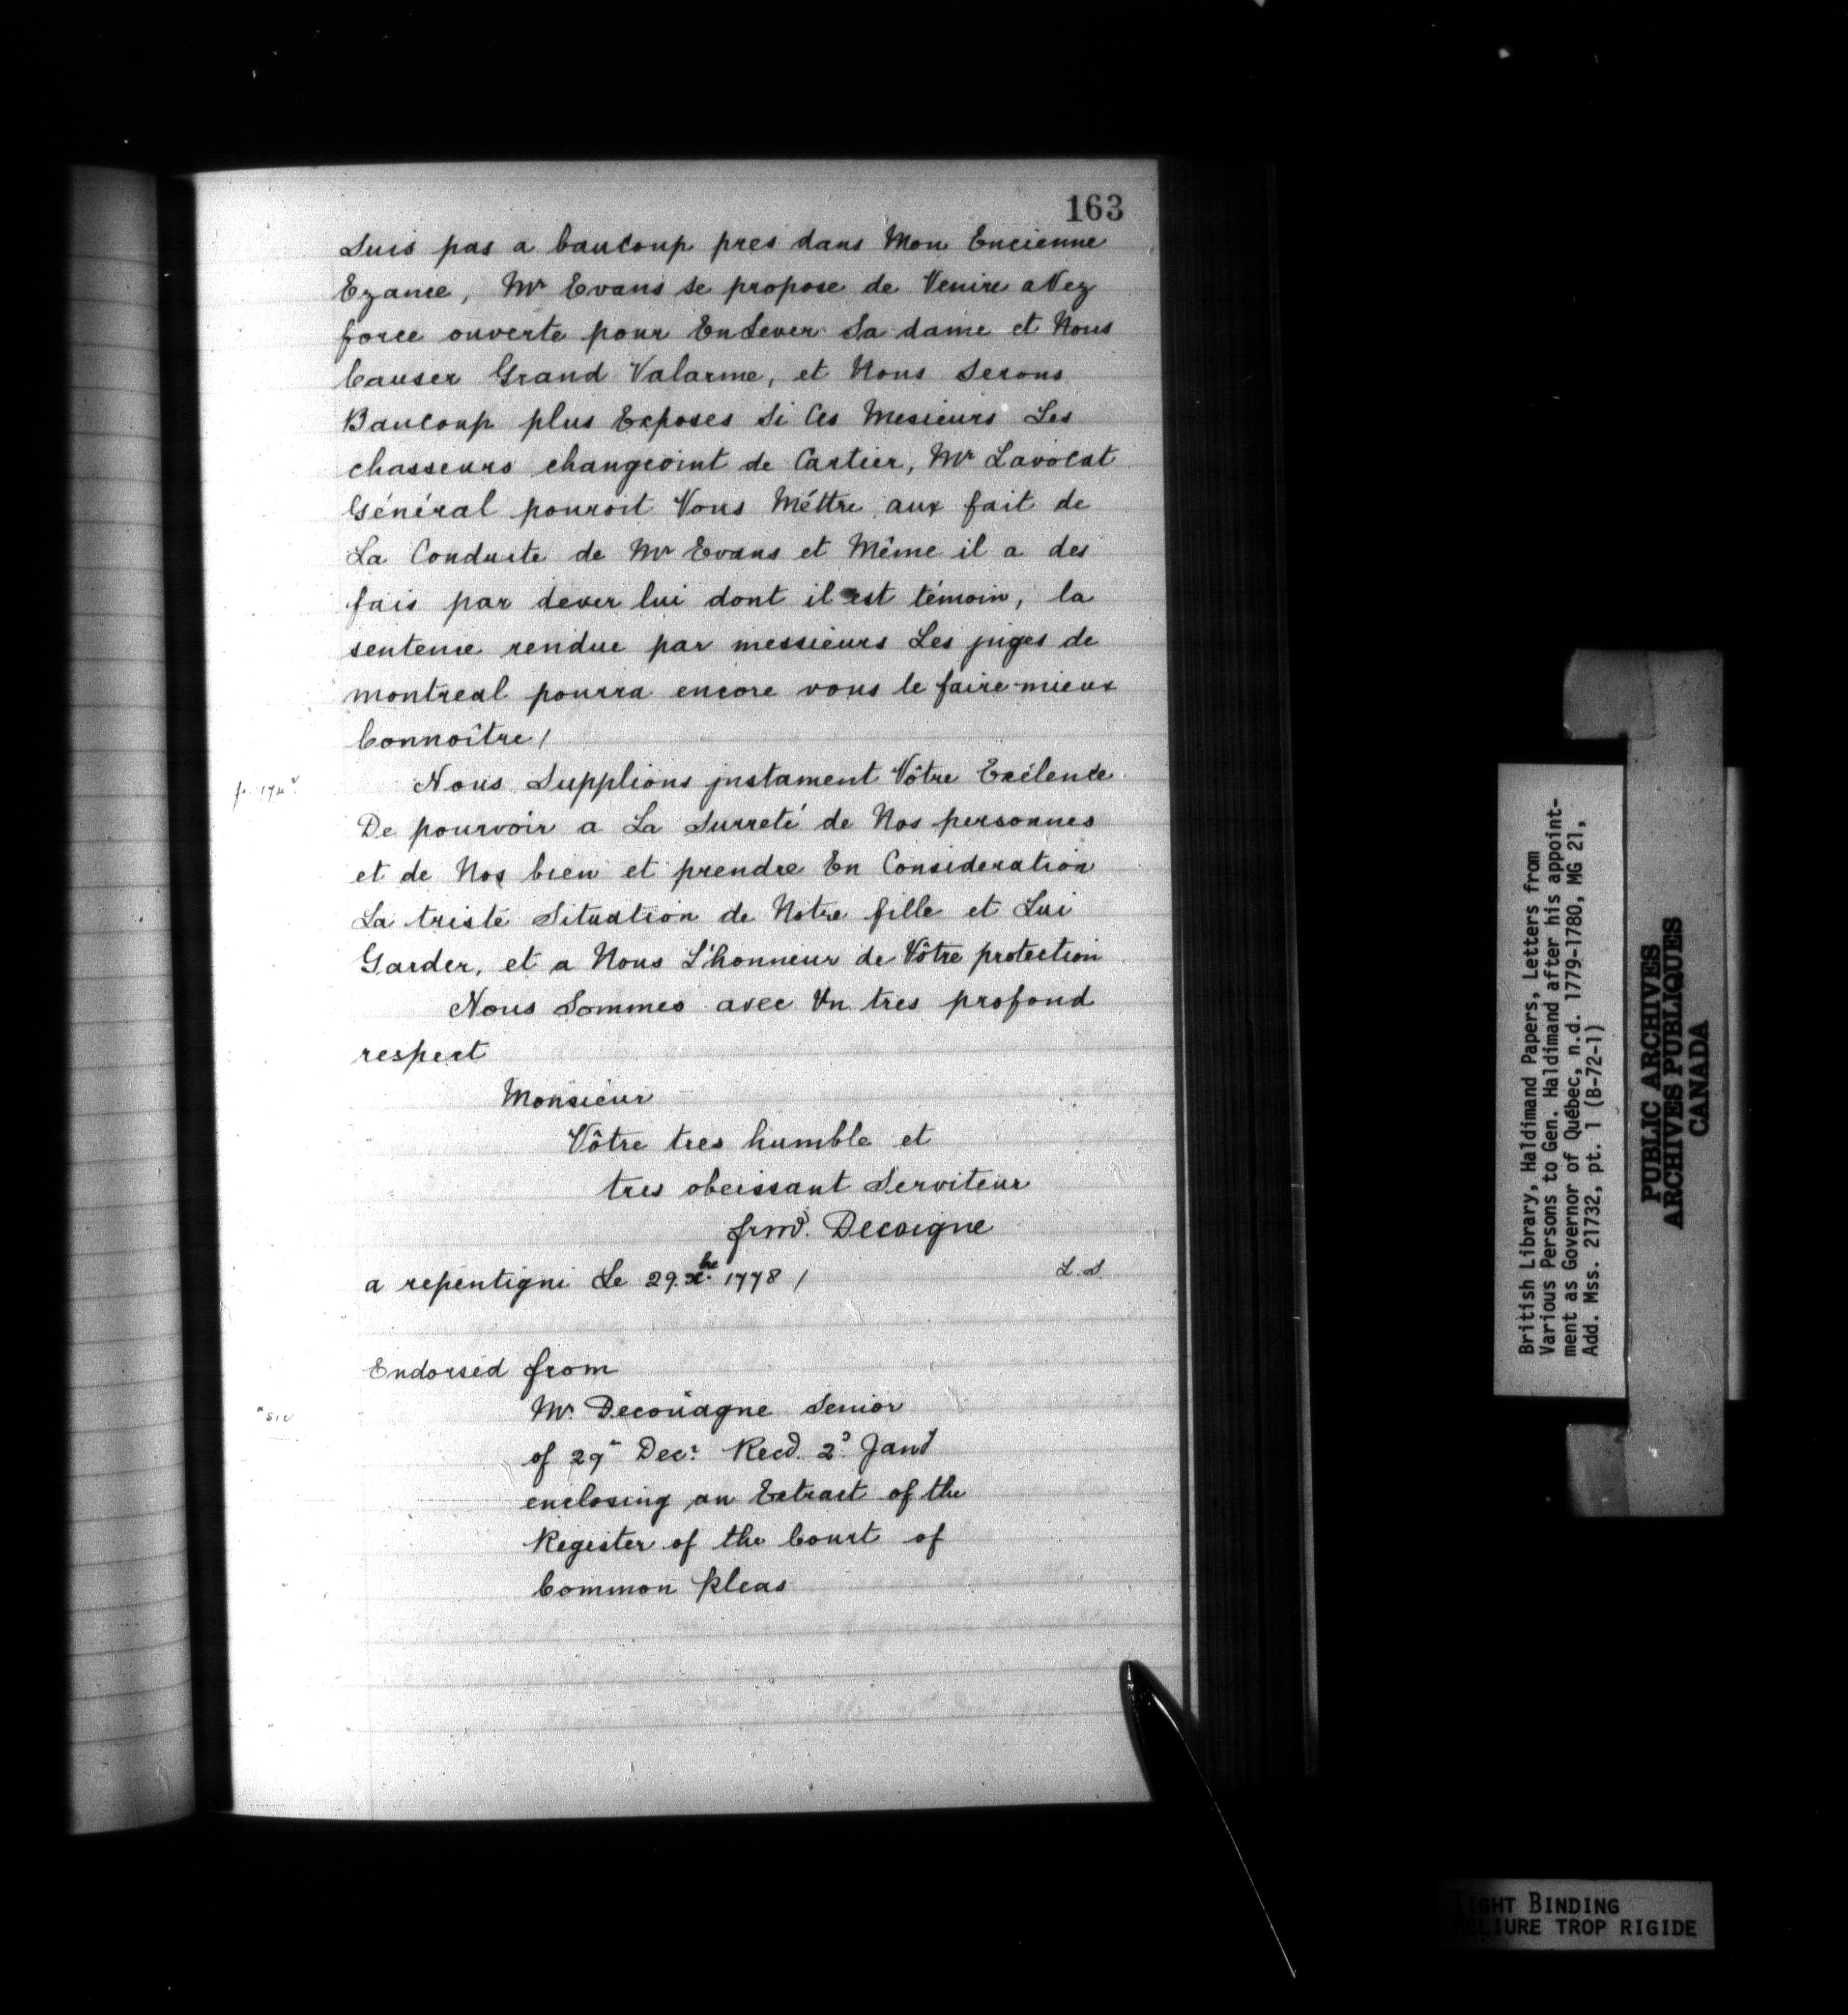 163
Suis pas a baucoup pres dans Mon Encienne
Ezance, Mr Evans se propose de Venire aVez
force ouverte pour EnLever Sa dame et Nous
Causer Grand Valarme, et Nous Serons
Baucoup plus Exposes Si Ces Mesieurs Les
chasseurs changeoint de Cartier, Mr Lavocat
Général pouroit Vous Méttre aux fait de
La Conduite de Mr Evans et Même il a des
fais par dever lui dont il est témoin, la
sentence rendue par messieurs Les juges de
montreal pourra encore vous le faire mieux
Connoître /
Nous Supplions justament Vôtre Exélence
De pourvoir a La Surreté de Nos personnes
et de Nos bien et prendre En Consideration
La triste Situation de Notre fille et Lui
Garder, et a Nous L'honneur de Vôtre protection
Nous Sommes avec Un tres profond
respect
Monsieur
Vôtre tres humble et
tres obeissant Serviteur
Decoigne
a repentigni Le 29. xbre 1778 /
L.S.
Endorsed from
Mr. Decoüagne Senior
sic
of 29th Decr. Recd. 2d Jany
enclosing an Extract of the
Register of the Court of
Common Pleas
British Library, Haldimand Papers, Letters from
Various Persons to Gen. Haldimand after his appoint-
ment as Governor of Québec, n.d. 1779-1780, MG 21,
Add. Mss. 21732, pt. 1 (B-72-1)
PUBLIC ARCHIVES
ARCHIVES PUBLIQUES
CANADA
TIGHT BINDING
RELIURE TROP RIGIDE